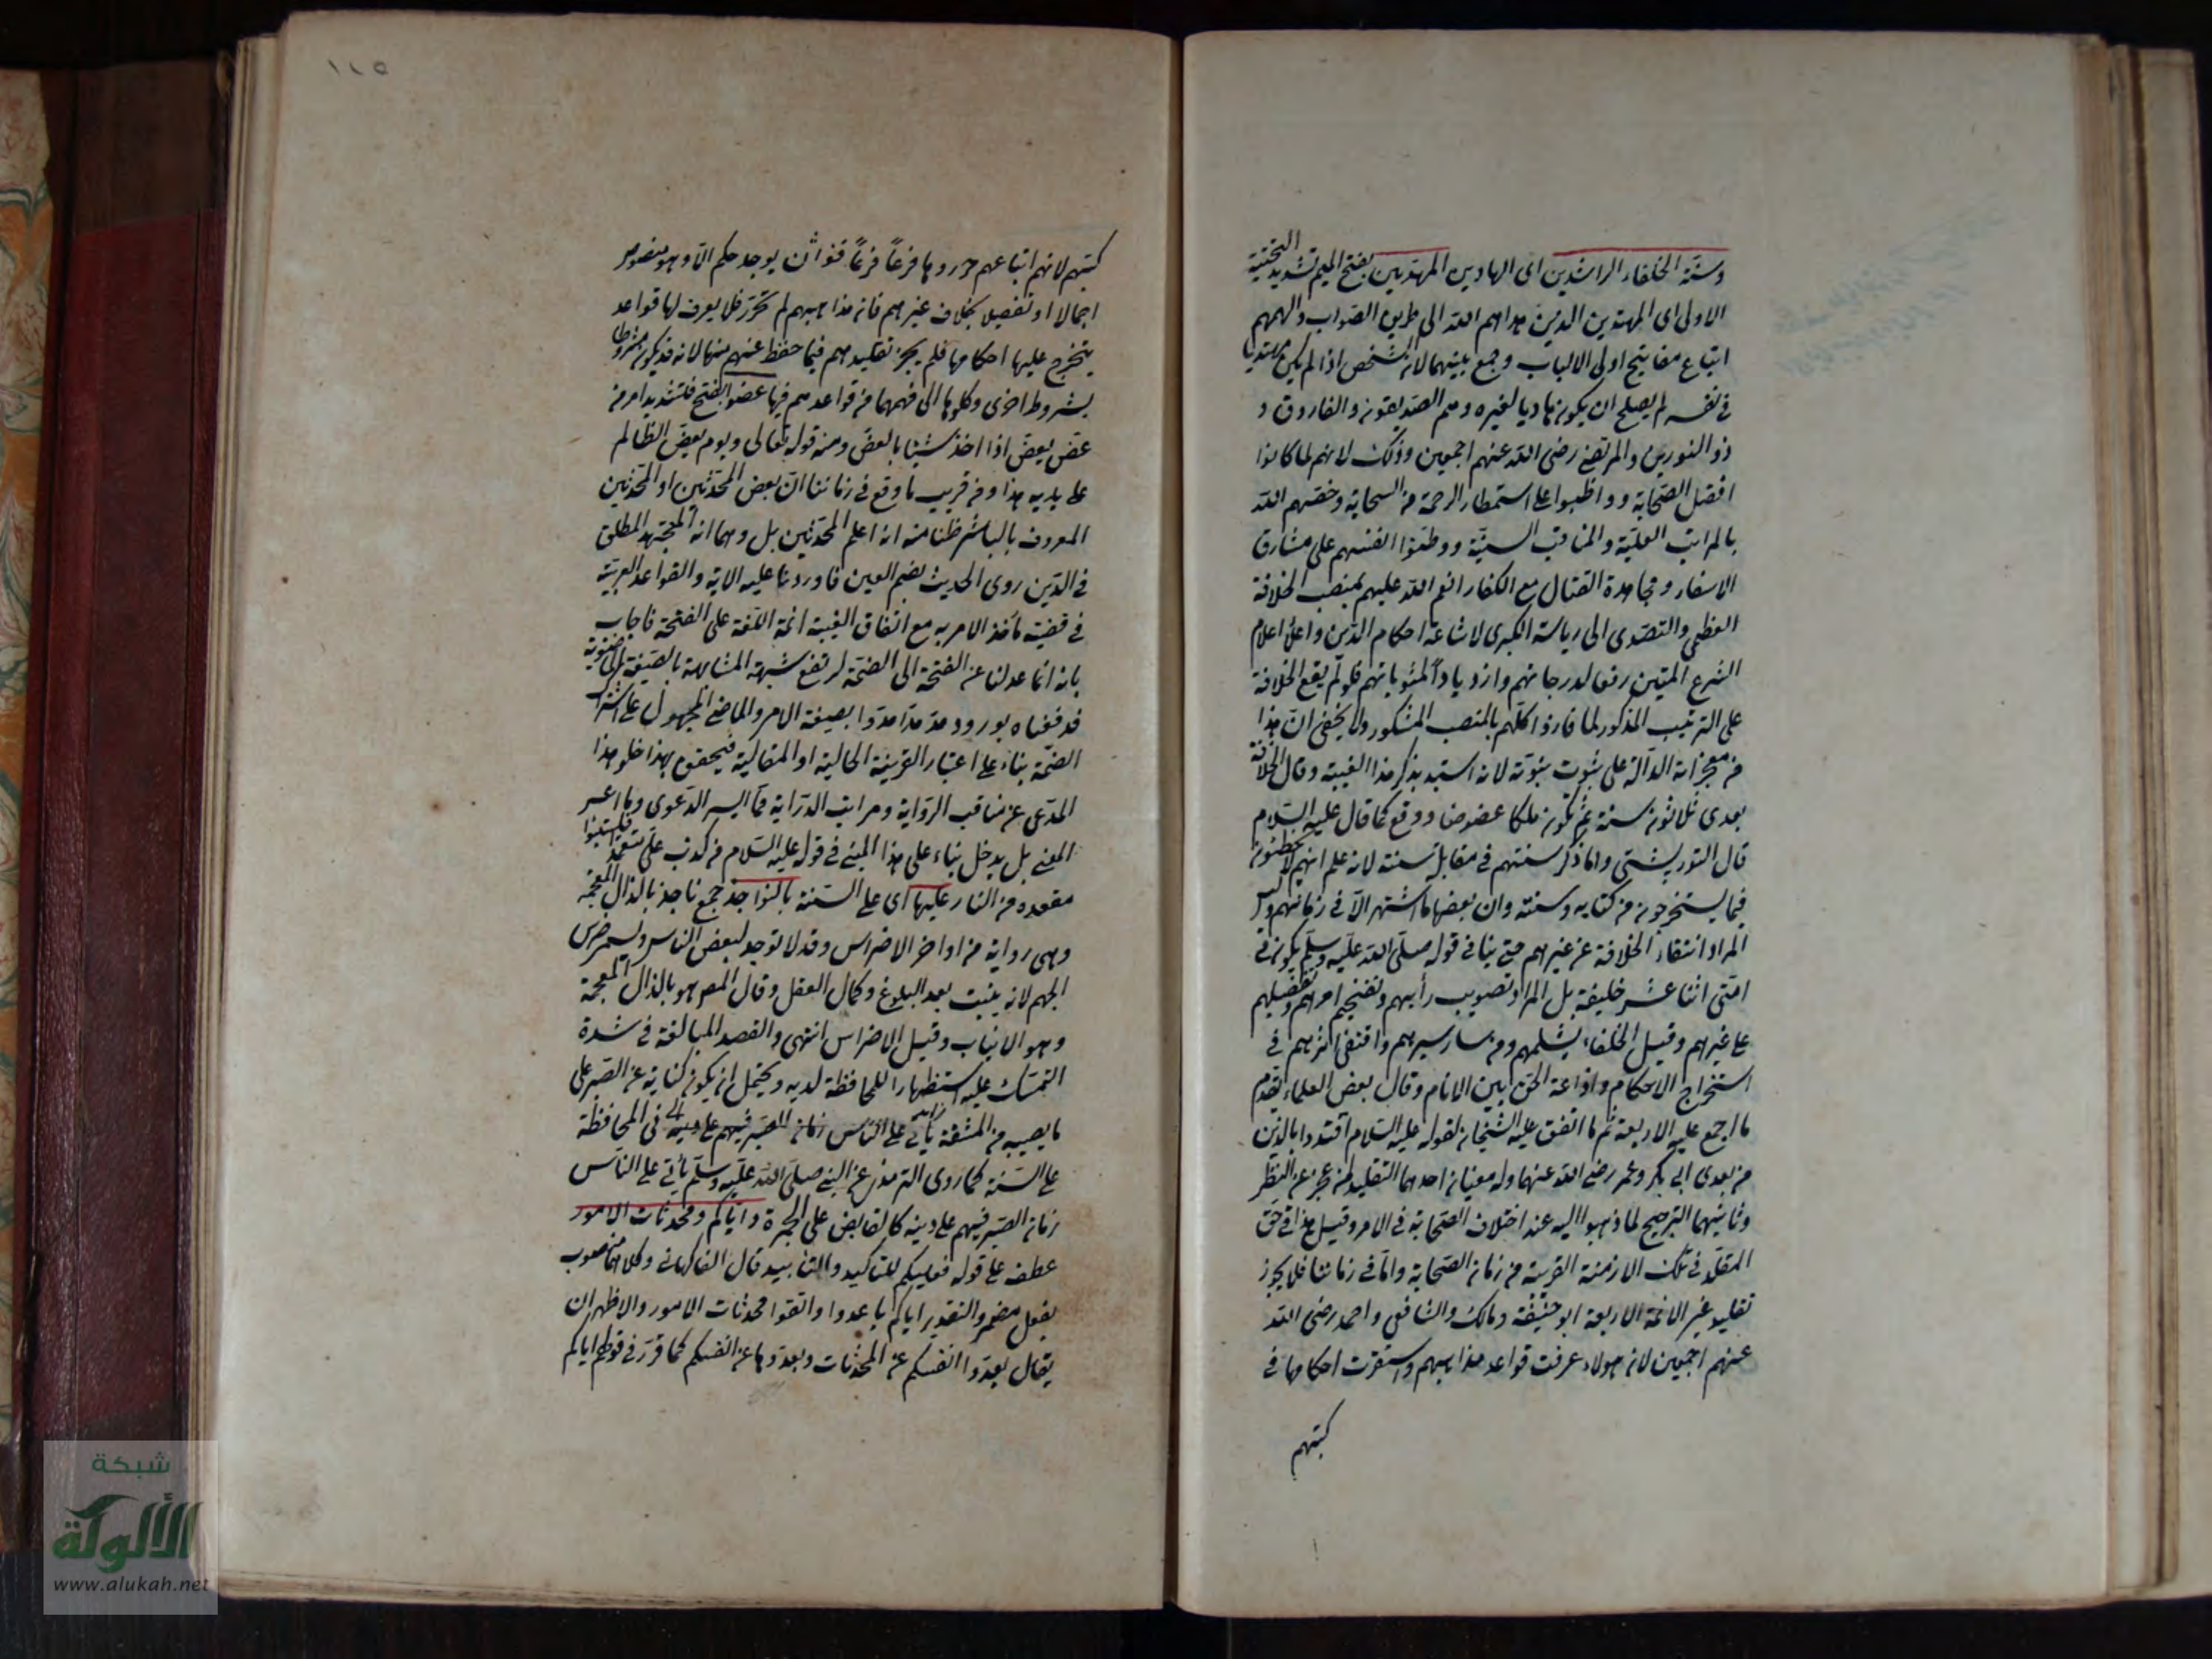 وسنّة الخلفاء الراشدين اى الهادين المهديين بفتح الميم تشديد التحتية
الاولى اى المهتدين الذين هداهم الله الى طريق الصّواب والهمهم
اتباع مفاتيح اولى الالباب وجمع بينهما لان الشخص اذا لم يكن مهتديا
فى نفسه لم يصلح ان يكون هاديا لغيره وهم الصديقون والفاروق و
ذو النورين والمرتضى رضى الله عنهم اجمعين وذلك لانهم لما كانوا
افضل الصّحابة وواظبوا على استمطار الرحمة من السحابة وخصهم الله
بالمراتب العليّة والمناقب السنيّة ووطّنوا انفسهم على مشارق
الاسفار ومجاهدة القتال مع الكفار انعم الله عليهم بمنصب الخلافة
العظمى والتصدى الى رياسة الكبرى لاشاعة احكام الدّين واعلاء اعلام
الشرع المتين رفعا لدرجاتهم وازديادا لمثوباتهم فلو لم يقع الخلافة
على الترتيب المذكور لما فازوا كلّهم بالمنصب المشكور ولا يخفى انّ هذا
من معجزاته الدالة على ثبوت نبوّته لانه استبد بذكر هذا الغيبة وقال الخلافة
بعدى ثلاثون سنة ثم تكون ملكا عضوضا ووقع كما قال عليه السّلام
قال التوربشتى وانما ذكر سنتهم فى مقابلة سنته لانه علم انهم لا يخطئون
فيما يستخرجون من كتابه وسنته وان بعضها ما اشتهر الّا فى زمانهم وليس
المراد انتفاء الخلافة عن غيرهم حتى ينافى قوله صلّى الله عليه وسلّم يكون فى
امتى اثنا عشر خليفة بل المراد تصويب رأيهم وتفخيم امرهم وتفضيلهم
على غيرهم وقيل الخلفاء يشلمهم ومن سار سيرهم واقتفى اثرهم فى
استخراج الاحكام واذاعة الحق بين الانام وقال بعض العلماء يقدم
ما اجمع عليه الاربعة ثم ما اتفق عليه الشيخان لقوله عليه السّلام اقتدوا بالذين
من بعدى ابى بكر وعمر رضى الله عنهما وله معنيان احدهما التقليد لمن عجز عن النظر
وثانيهما الترجيح لما ذهبوا اليه عند اختلاف الصّحابة فى الامر وقيل هذا فى حق
المقلّد فى تلك الازمنة القريبة من زمان الصّحابة وامّا فى زماننا فلا يجوز
تقليد غير الائمة الاربعة ابو حنيفة ومالك والشافعى واحمد رضى الله
عنهم اجمعين لان هولاء عرفت قواعد مذاهبهم واستقرّت احكامها فى
كتبهم
١١٥
كتبهم لانهم اتباعهم حرروها فرعًا فرعًا فقوا أن يوجد حكم الّا وهو منصوص
اجمالا او تفصيلا بخلاف غيرهم فان مذاهبهم لم تحرّر فلا يعرف لها قواعد
يتخرج عليها احكامها فلم يجز تقليدهم فيما حفظ عنهم منها لانه قد يكون مشروطا
بشروط اخرى وكلوها الى فهمها من قواعدهم فيها عضوا بالفتح فتشديد امر من
عضّ يعضّ اذا اخذ شيئا بالعض ومنه قوله تعالى ويوم يعضّ الظالم
على يديه هذا ومن قريب ما وقع فى زماننا انّ بعض المحدّثين او المحدثين
المعروف بالباشر ظنا منه انه اعلم المحدّثين بل وهما انه المجتهد المطلق
فى الدّين روى الحديث بضم العين فاوردنا عليه الاية والقواعد العربيّة
فى قضية مأخذ الامر به مع اتفاق الغيبة ائمة اللغة على الفتحة فاجاب
بانه انما عدلنا عن الفتحة الى الضمّة لرفع شبهة المشابهة بالصيغة
فدفعناه بورود مدّ مدّا مدّوا بصيغة الامر والماضى المجهول على اشتراك
الضمّة بناء على اعتبار القرينة الحالية او المقالية فيحقق بهذا خلو هذا
المدّعى عن مناقب الرّواية ومراتب الدّراية فما اليسر الدّعوى وما اعسر
المعنى بل يدخل بناء على هذا المبنى فى قوله عليه السّلام من كذب علىّ متعمدا فليتبوأ
مقعده من النار عليها اى على السّنة بالنواجذ جمع ناجذ بالذال المعجمة
وهى رواية من اواخر الاضراس وقد لا توجد لبعض الناس ويسمى ضرس
الحلم لانه ينبت بعد البلوغ وكمال العقل وقال المص هو بالذال المعجمة
وهو الانياب وقيل الاضراس انتهى والقصد المبالغة فى شدة
التمسّك عليه استظهارا للمحافظة لديه ويحتمل ان يكون كناية عن الصّبر على
ما يصيبه من المشقة يأتى على النّاس زمان الصّبر فيهم على دينه فى المحافظة
على السّنة كما روى الترمذى عن النبى صلّى الله عليه وسلّم يأتى على النّاس
زمان الصّبر فيهم على دينه كالقابض على الجمرة وايّاكم ومحدثات الامور
عطف على قوله فعليكم للتاكيد والتأبيد قال الفاكهانى وكلاهما منصوب
بفعل مضمر والتقدير اياكم باعدوا واتقوا محدثات الامور والاظهر ان
يقال بعّدوا انفسكم عن المحدثات وبعّدوها عن انفسكم كما قرّر فى قولهم اياكم
شبكة
الألوكة
www.alukah.net